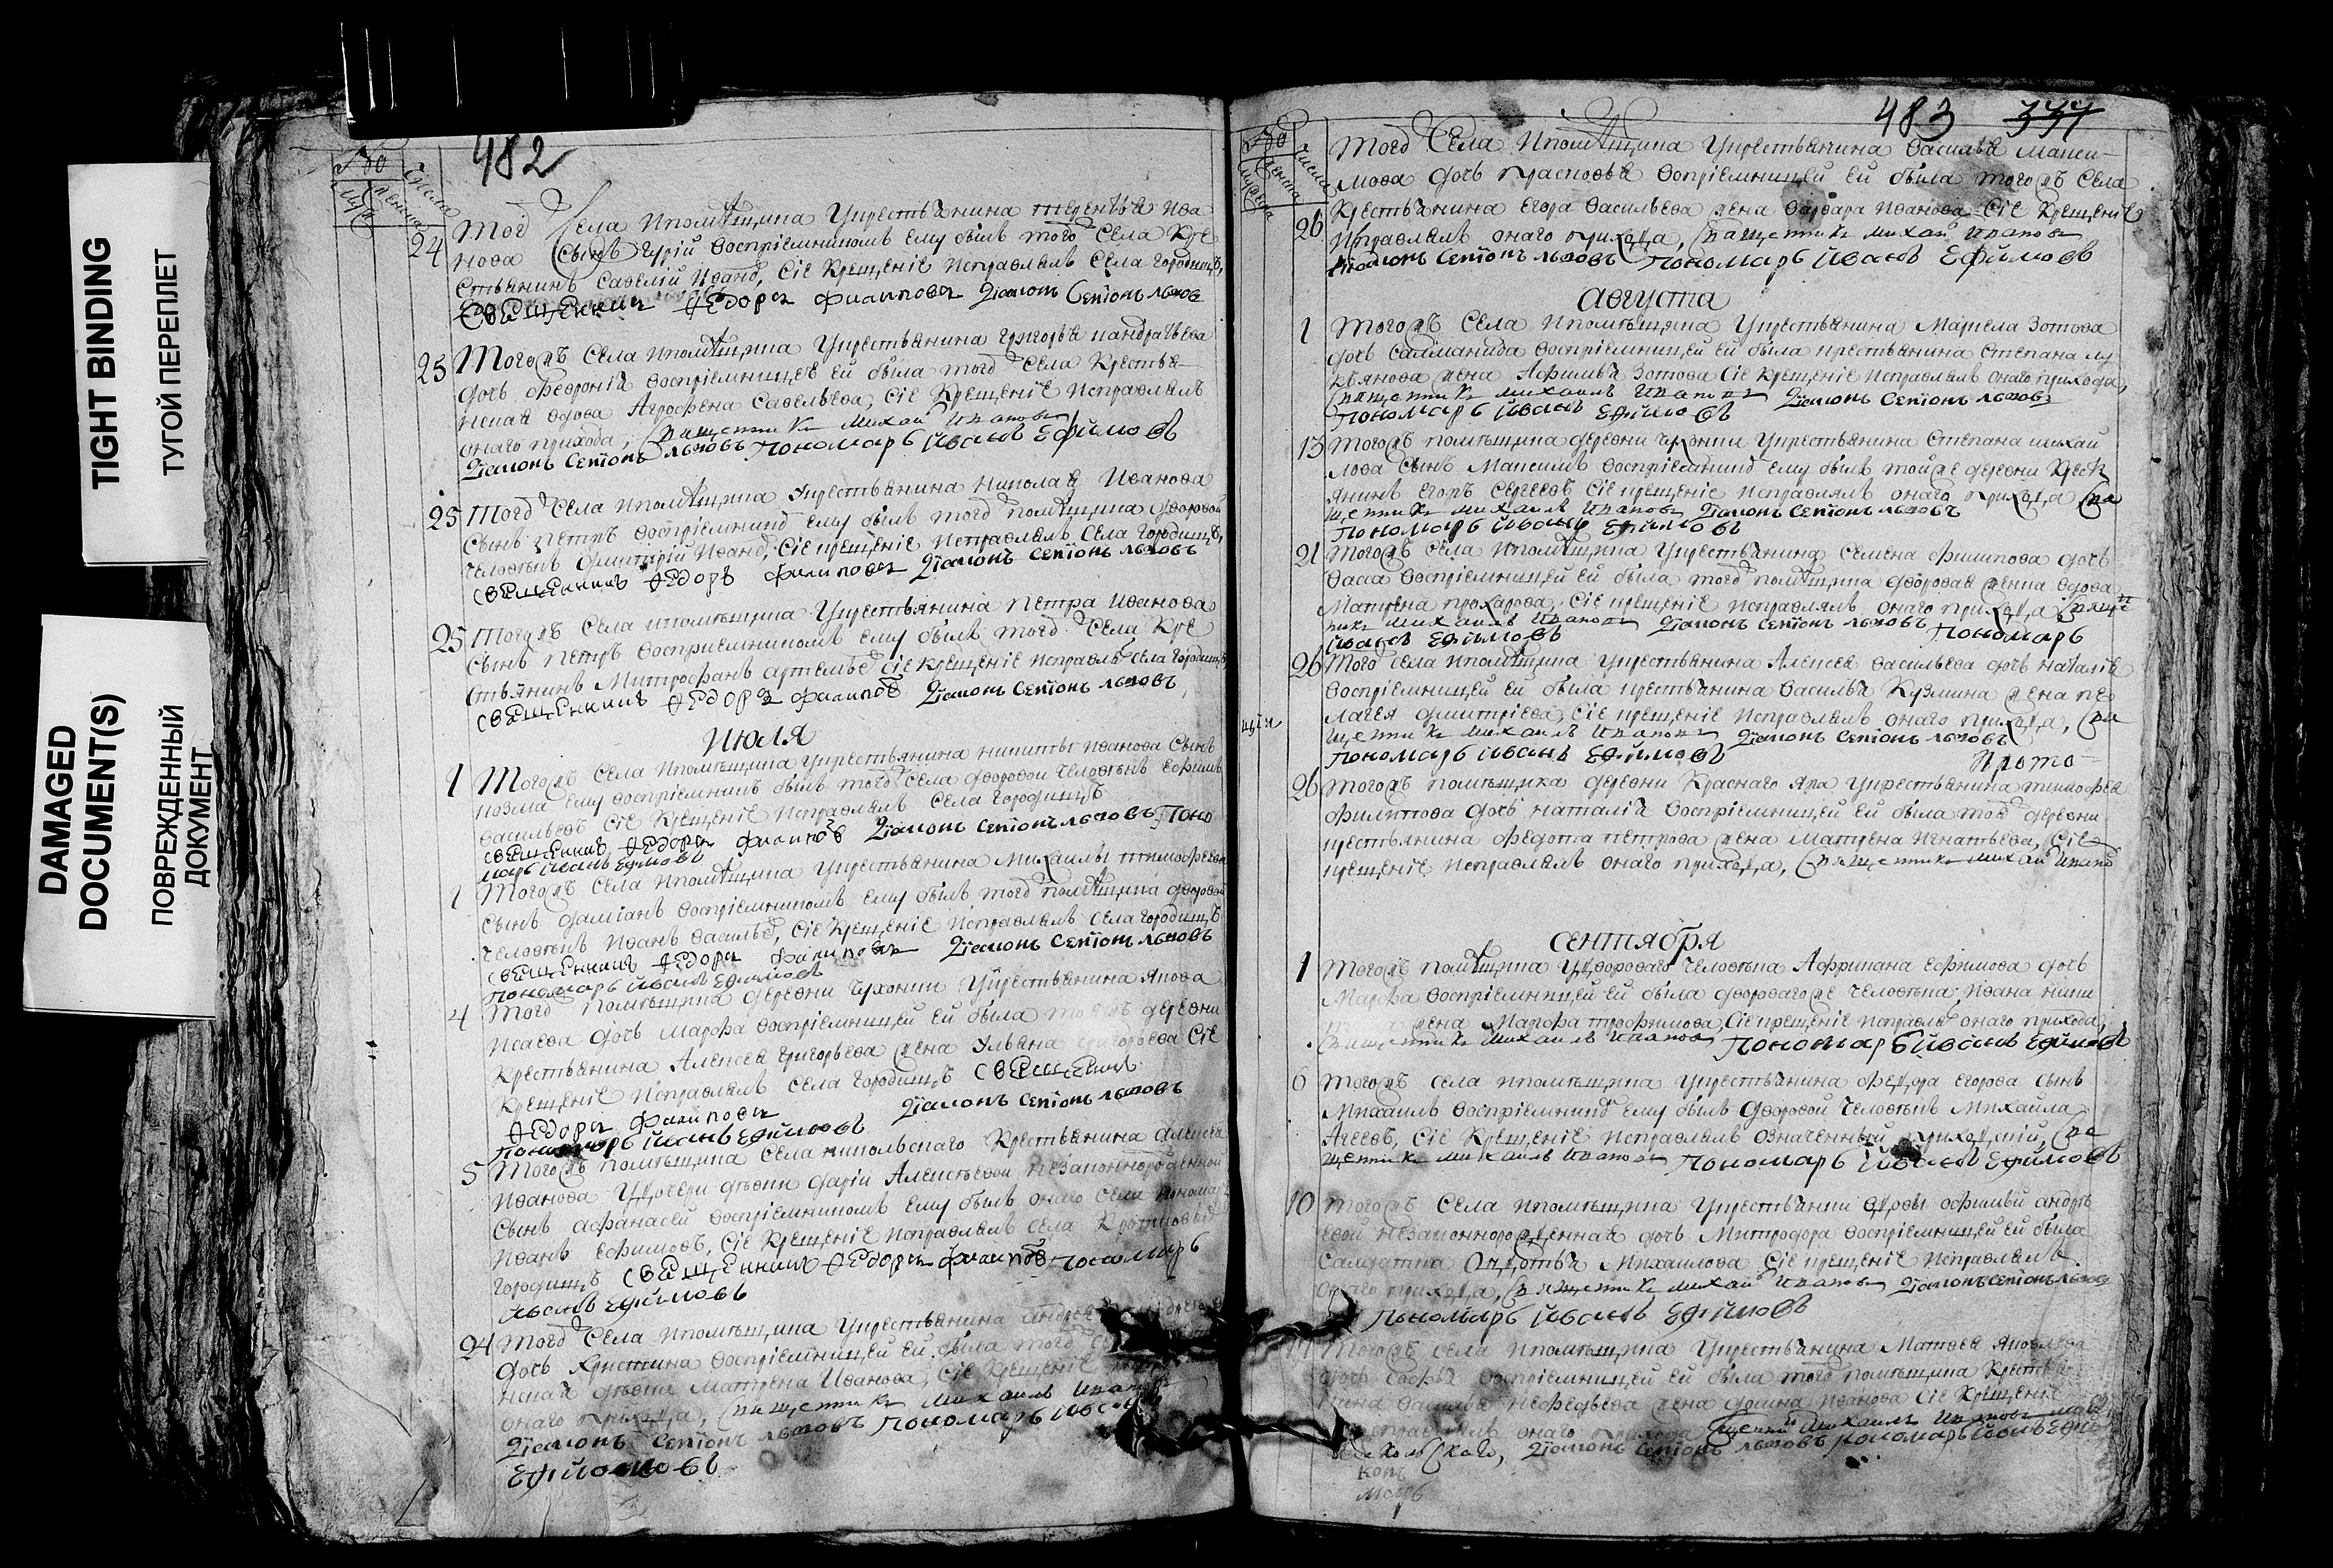 TIGHT BINDING
ТУГОЙ ПЕРЕПЛЕТ
DAMAGED
DOCUMENT(S)
ПОВРЕЖДЕННЫЙ
ДОКУМЕНТ
482
24 Тогѡ Села ипомѣщика Укрестьянина терентья Ива
нова Сынъ Гурій воспріемникомъ ему былъ того Села Кре
стьянинъ Савелій Ивано, Сіе Крещеніе исправлялъ Села городищъ,
Священникъ Ѳедоръ Филиповъ Діаконъ Семіонъ львовъ
25 Тогожъ Села ипомѣщика Укрестьянина григорья кандратьева
дочь Феѳроній воспріемницей ей была того Села Крестья
нская вдова Агрофена Савельева, Сіе Крещеніе исправлялъ
онаго прихода, священникъ михаи Ивановъ
Діаконъ Семіонъ львовъ Пономарь Иванъ Ефимовъ
25 Того Села ипомѣщика Укрестьянина николая Иванова
Сынъ петръ воспріемнико ему былъ того помѣщика дворовой
человѣкъ дмитрій Ивано, Сіе крещеніе исправлялъ Села городищъ,
священникъ Ѳедоръ Филиповъ Діаконъ Семіонъ львовъ
25 Тогожъ Села ипомѣщика Укрестьянина петра Иванова
Сынъ петръ воспріемникомъ ему былъ того Села Кре
стьянинъ Митрофанъ артемье Сіе крещеніе исправля Села городищъ
священникъ Ѳедоръ филипов Діаконъ Семіонъ львовъ
Июля
1 Тогожъ Села ипомѣщика Укрестьянина никиты иванова Сынъ
козма ему воспріемникъ былъ того Села дворовой человѣкъ Ефимъ
васильевъ Сіе Крещеніе исправлялъ Села городищъ
священникъ Ѳедоръ филипов Діаконъ Семіонъ львовъ Поно
марь Иванъ Ефимовъ
1 Тогожъ Села ипомѣщика Укрестьянина Михаилы тимофеева
Сынъ даміанъ воспріемникомъ ему былъ того помѣщика дворовой
человѣкъ Иванъ василье, Сіе Крещеніе исправлялъ Села городищъ
священникъ Ѳедоръ Филиповъ Діаконъ Семіонъ львовъ
Пономарь Иванъ Ефимовъ
4 Того помѣщика деревни чухонки Укрестьянина якова
Исаева дочь Марфа воспріемницей ей была тоежъ деревни
Крестьянина Алексея григорьева жена Ульяна григорьева Сіе
Крещеніе исправлялъ Села городищъ священникъ
Ѳедоръ Филиповъ Діаконъ Семіонъ львовъ
Пономарь Иванъ Ефимовъ
5 Тогожъ помѣщика Села никольскаго Крестьянина алексея
Иванова Удочери дѣвки даріи Алексѣевой незаконнорожденной
Сынъ афанасей воспріемникомъ ему былъ онаго Села пономарь
Иванъ Ефимовъ, Сіе Крещеніе исправлялъ Села
городищъ священникъ Ѳедоръ филипов Пономарь
Иванъ Ефимовъ
24 Того Села ипомѣщика Укрестьянина андрея
дочь Христина воспріемницей ей была того
дѣвка Матрена Иванова, Сіе Крещеніе
онаго прихода, священникъ михаилъ Ивановъ
Діаконъ Семіонъ львовъ Пономарь Иванъ
Ефимовъ
483 377
Того Села ипомѣщика Укрестьянина василья макси
мова дочь прасковья воспріемницей ей была тогожъ Села
26 Крестьянина Егора васильева жена варвара Иванова Сіе Крещеніе
исправлялъ онаго прихода, священникъ михаи Ивановъ
Діаконъ Семіонъ львовъ Пономарь Иванъ Ефимовъ
августа
1 Тогожъ Села ипомѣщика Укрестьянина Маркела Зотова
дочь Саломанида воспріемницей ей была крестьянина Степана лу
кьянова жена Афимья Зотова Сіе крещеніе исправлялъ онаго прихода,
священникъ михаилъ Ивановъ Діаконъ Семіонъ львовъ
Пономарь Иванъ Ефимовъ
13 Тогожъ помѣщика деревни чухонки Укрестьянина Степана михаи
лова Сынъ Максимъ воспріемнико ему былъ тойже деревни Крест
янинъ Егоръ Сергеевъ Сіе крещеніе исправлялъ онаго прихода свя
щенникъ михаилъ Ивановъ Діаконъ Семіонъ львовъ
Пономарь Иванъ Ефимовъ
21 Тогожъ Села ипомѣщика Укрестьянина Семена филипова дочь
васса воспріемницей ей была того помѣщика дворовая женка вдова
Матрена прохарова, Сіе крещеніе исправлялъ онаго прихода священ
никъ михаилъ Ивановъ Діаконъ Семіонъ львовъ Пономарь
Иванъ Ефимовъ
26 Того Села ипомѣщика Укрестьянина Алексея васильева дочь наталіе
воспріемницей ей была крестьянина василья Кузмина жена пе
лагея дмитріева, Сіе крещеніе исправлялъ онаго прихода, свя
щенникъ михаилъ Ивановъ Діаконъ Семіонъ львовъ
Пономарь Иванъ Ефимовъ Прото=
26 Тогожъ помѣщика деревни Краснаго Яра Укрестьянина тимофея
филиппова дочь наталія воспріемницей ей была той деревни
крестьянина федота петрова жена Матрена Игнатьева, Сіе
крещеніе исправлялъ онаго прихода, священникъ михаи Ивано
сентября
1 Тогожъ помѣщика Удвороваго человѣка Африкана Ефимова дочь
Марфа воспріемницей ей была двороваго же человѣка Ивана ники
жена Марфа трофимова, Сіе крещеніе исправля онаго прихода,
священникъ михаилъ Ивановъ Пономарь Иванъ Ефимовъ
6 Тогожъ Села ипомѣщика Укрестьянина федора Егорова Сынъ
Михаилъ воспріемнико ему былъ дворовой человѣкъ Михайла
Агеевъ, Сіе Крещеніе исправлялъ означенный приходскій, свя
щенникъ михаилъ Ивановъ Пономарь Иванъ Ефимовъ
10 Тогожъ Села ипомѣщика Укрестьянки вдовы афимьи андре
евой незаконнорожденная дочь Митродора воспріемницей ей была
Салдатка Авдотья Михаилова Сіе крещеніе исправлялъ
онаго прихода, священникъ михаи Ивановъ Діаконъ Семіонъ львовъ
Пономарь Иванъ Ефимовъ
Тогожъ Села ипомѣщика Укрестьянина Матвея Яковлева
дочь Софья воспріемницей ей была того помѣщика Крестья
нина василья Нефедьева жена домна Иванова Сіе Крещеніе
исправлялъ онаго прихода священни михаилъ Ивановъ
Діаконъ Семіонъ львовъ Пономарь Иванъ Ефимо